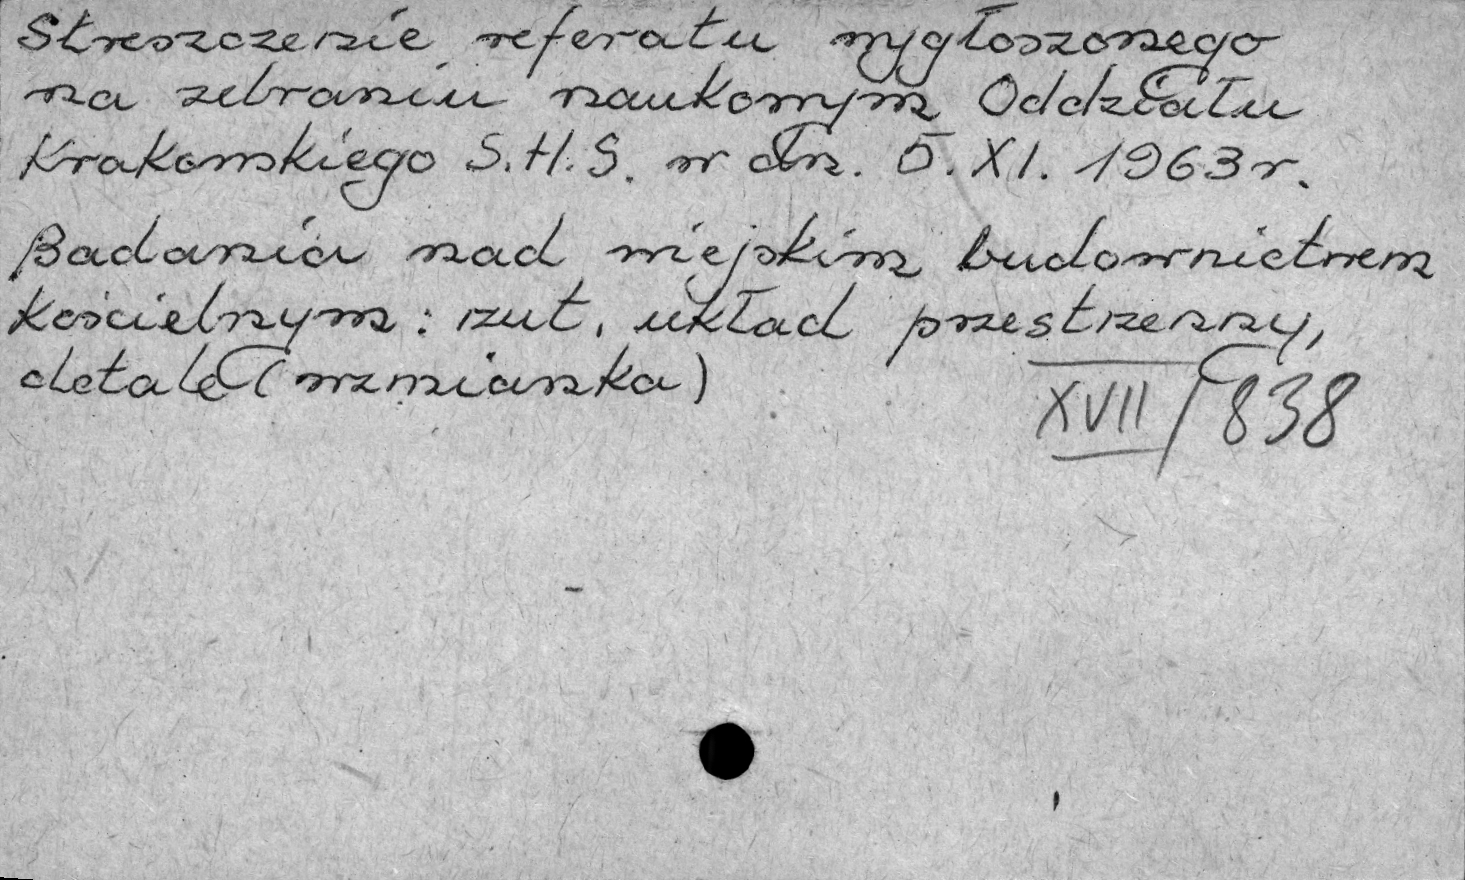 Streszczenie referatu wygłoszonego
na zebraniu naukowym Oddziału
Krakowskiego S.H.S. w dn. 5. XI. 1963 r.
Badania nad wiejskim budownictwem
kościelnym: rzut, układ przestrzenny,
detale (wzmianka)
XVII/838